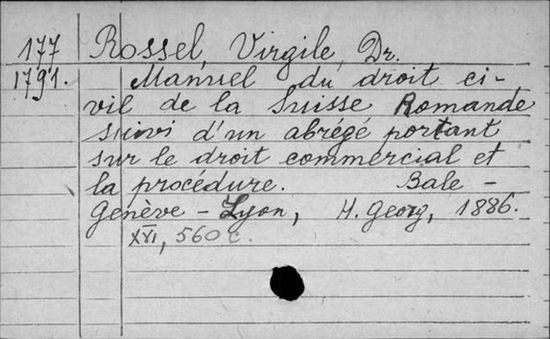 177 Rossel, Virgile, Dr.
1791. Manuel du droit ci-
vil de la Suisse Romande
suivi d'un abrégé portant
sur le droit commercial et
la procédure. Bale -
Genève - Lyon, H. Georg, 1886.
XVI, 560 c.